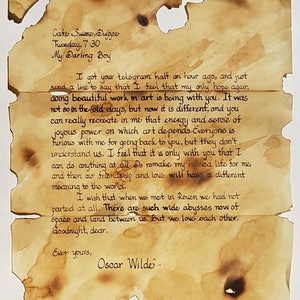 Cafe Suisse, Dieppe
Tuesday, 7:30
My Darling Boy
I got your telegram half an hour ago, and just
send a line to say that I feel that my only hope again
doing beautiful work in art is being with you. It was
not so in the old days, but now it is different, and you
can really recreate in me that energy and sense of
joyous power on which art depends. Everyone is
furious with me for going back to you, but they don't
understand us. I feel that it is only with you that I
can do anything at all. Do remake my ruined life for me,
and then our friendship and love will have a different
meaning to the world.
I wish that when we met in Rouen we had not
parted at all. There are such wide abysses now of
space and land between us. But we love each other.
Goodnight, dear.
Ever yours,
Oscar Wilde